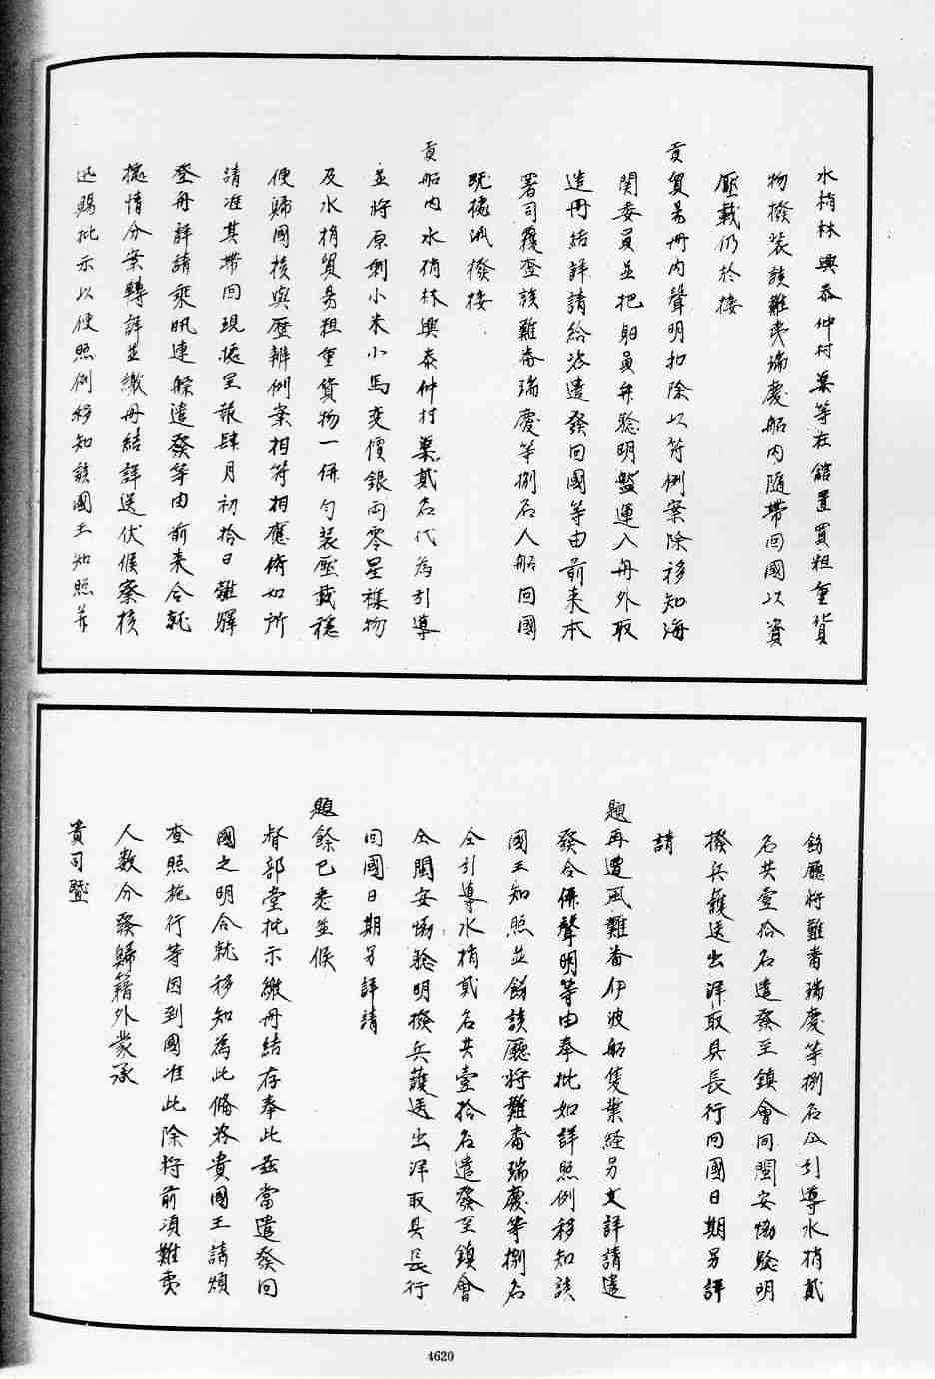 水梢林興泰仲村渠等在館置買粗重貨
物撥裝該難夷瑞慶船内隨帶回國以資
壓載仍於接
貢貿易冊内聲明扣除以符例案除移知海
関委員並把口員弁驗明盤運入冊外取
造冊結詳請給咨遣發回國等由前来本
署司覆查該難番瑞慶等捌名人船回國
既據汎撥接
貢船内水梢林興泰仲村渠貳名代為引導
並將原剩小米小馬変價銀両零星襍物
及水梢貿易粗重貨物一併匀裝壓載穩
便歸國核與歷辨例案相符相應俯如所
請准其帶回現據呈報肆月初拾日離驛
登舟詳請乘汛連䑸遣發等由前来合就
據情分案轉詳並繳冊結詳送伏候察核
迅賜批示以便照例移知該國王知照并
飭廳将難番瑞慶等捌名仝引導水梢貳
名共壹拾名遣發至鎮會同閩安協驗明
撥兵護送出洋取具長行回國日期另詳
請
題再遭風難番伊波船隻業經另文詳請遣
發合併聲明等由奉批如詳照例移知該
國王知照並飭該廳将難番瑞慶等捌名
仝引導水梢貳名共壹拾名遣發至鎮會
仝閩安協驗明撥兵護送出洋取具長行
回國日期另詳請
題餘已悉並候
督部堂批示繳冊結存奉此茲當遣發回
國之明合就移知為此備咨貴國王請煩
查照施行等因到國准此除将前項難夷
人数分發歸籍外蒙承
貴司暨
4620